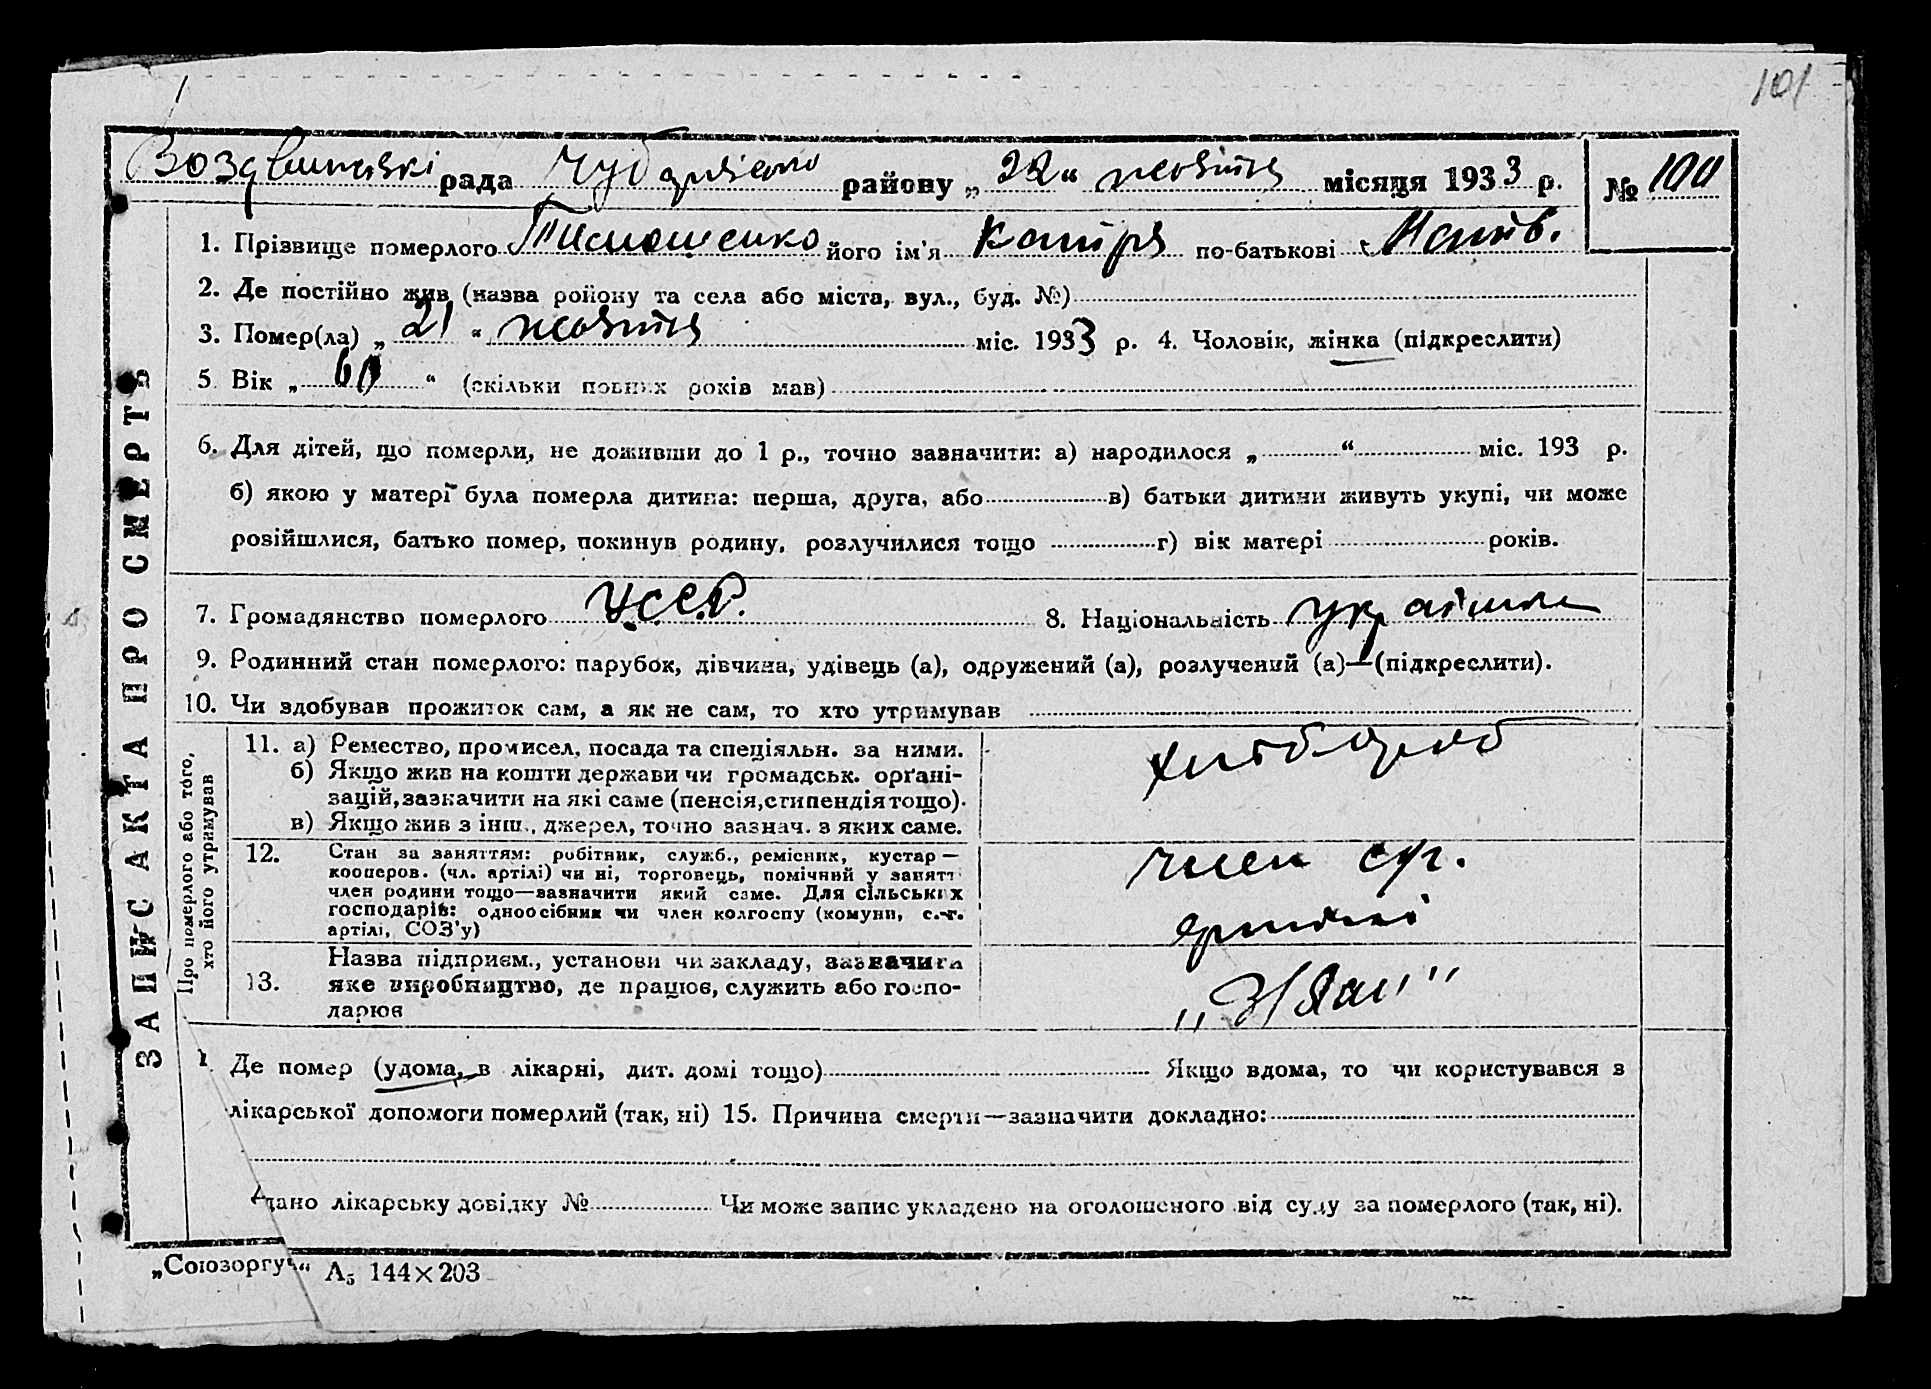 101
Воздвиженскі рада Чубарівського району „ 22 “ жовтня місяця 1933 р. № 100
1. Прізвище померлого Тимошенко його ім'я Катря по-батькові Матв.
2. Де постійно жив (назва району та села або міста, вул., буд. №)
3. Помер(ла) „ 21 “ жовтня міс. 1933 р. 4. Чоловік, жінка (підкреслити)
5. Вік „ 60 “ (скільки повних років мав)
6. Для дітей, що померли, не доживши до 1 р., точно зазначити: а) народилося „ “ міс. 193 р.
б) якою у матері була померла дитина: перша, друга, або в) батьки дитини живуть укупі, чи може
розійшлися, батько помер, покинув родину, розлучилися тощо г) вік матері років.
7. Громадянство померлого У.С.С.Р. 8. Національність україн
9. Родинний стан померлого: парубок, дівчина, удівець (а), одружений (а), розлучений (а)—(підкреслити).
10. Чи здобував прожиток сам, а як не сам, то хто утримував
ЗАПИС АКТА ПРО СМЕРТЬ
Про померлого або того,
хто його утримував
11. а) Ремество, промисел, посада та спеціяльн. за ними. хлібороб
б) Якщо жив на кошти держави чи громадськ. орґані-
зацій, зазначити на які саме (пенсія, стипендія тощо).
в) Якщо жив з інш., джерел, точно зазнач. з яких саме.
12. Стан за заняттям: робітник, служб., ремісник, кустар — член с/г.
кооперов. (чл. артілі) чи ні, торговець, помічний у занятт
член родини тощо—зазначити який саме. Для сільських
господарів: одноосібник чи член колгоспу (комуни, с.-г. артілі
артілі, СОЗ'у)
Назва підприєм., установи чи закладу, зазначити
13. яке виробництво, де працює, служить або госпо-
дарює
Де помер (удома, в лікарні, дит. домі тощо) Якщо вдома, то чи користувався з
лікарської допомоги померлий (так, ні) 15. Причина смерти—зазначити докладно:
дано лікарську довідку № Чи може запис укладено на оголошеного від суду за померлого (так, ні).
„Союзоргуч“ А5 144×203